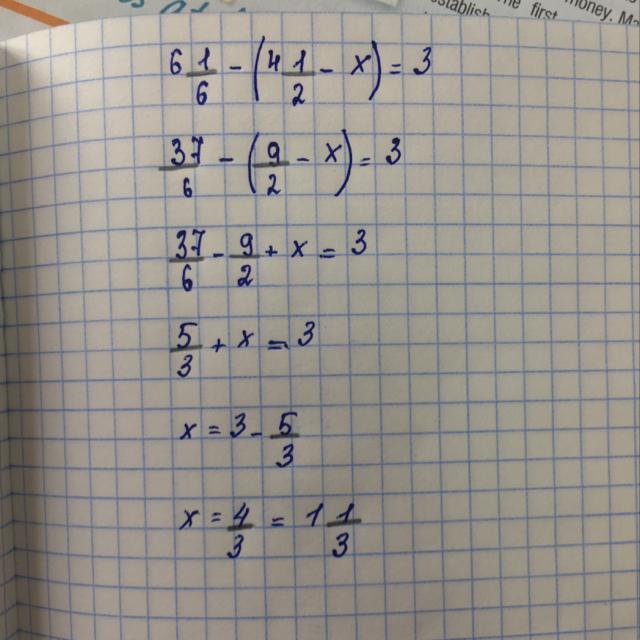 establish the first money. Ma
6 1/6 - (4 1/2 - x) = 3
37/6 - (9/2 - x) = 3
37/6 - 9/2 + x = 3
5/3 + x = 3
x = 3 - 5/3
x = 4/3 = 1 1/3